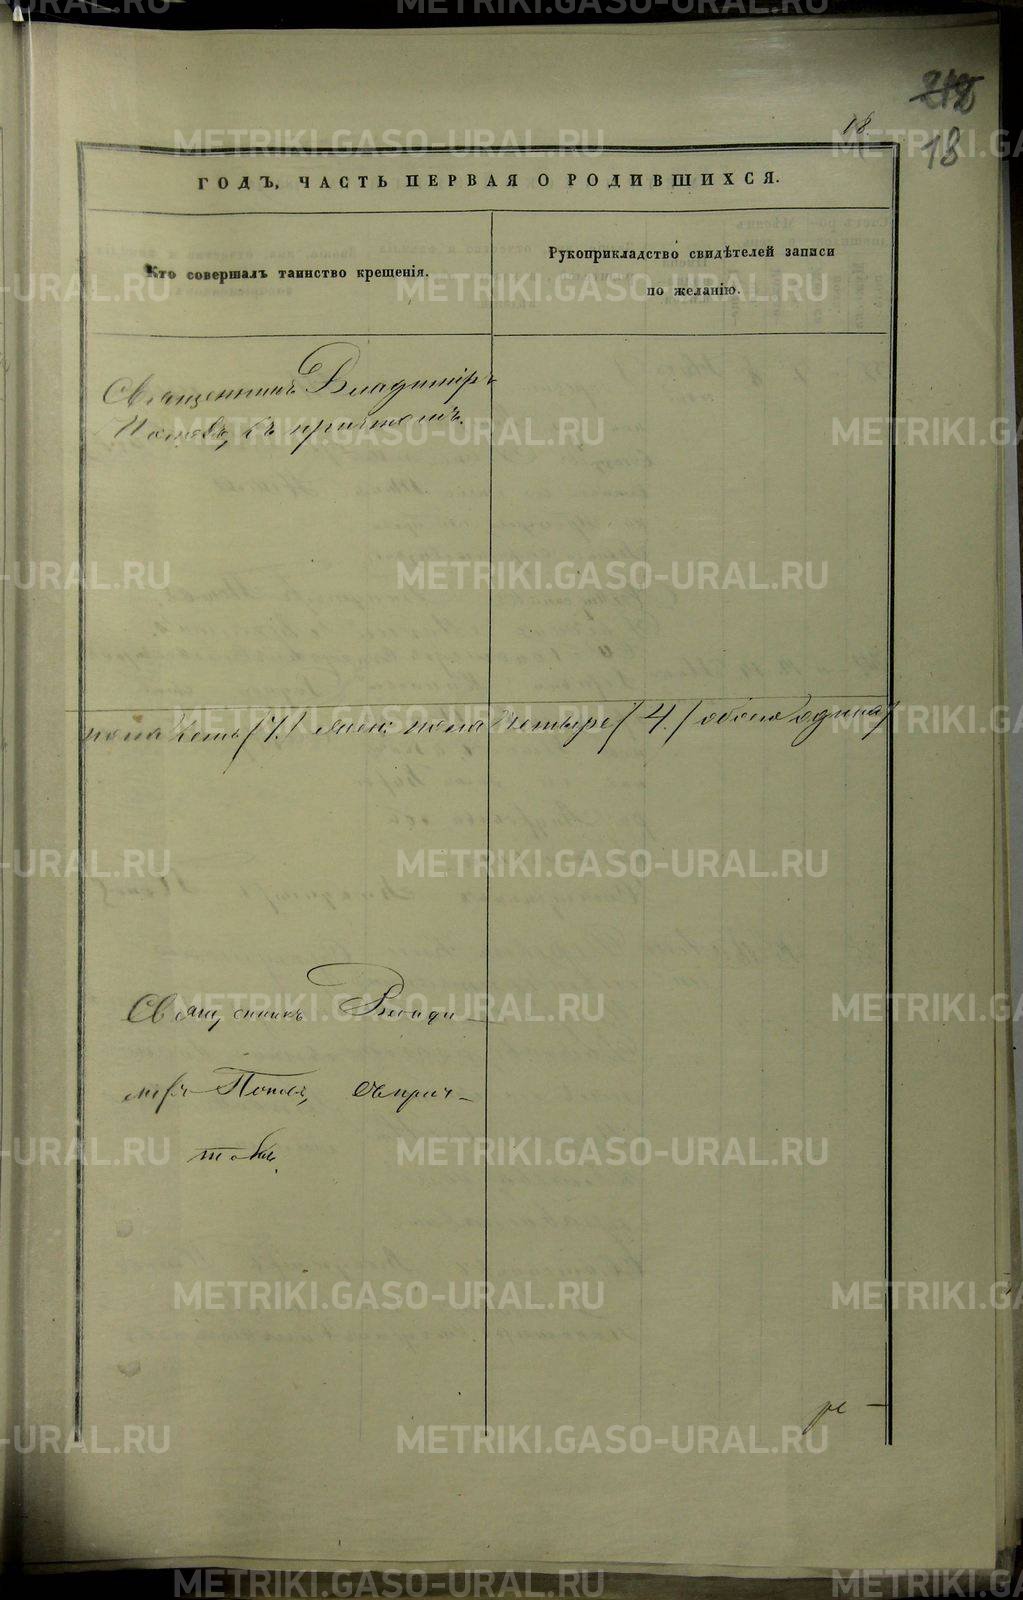 212
18.
18
ГОДЪ, ЧАСТЬ ПЕРВАЯ О РОДИВШИХСЯ.
Кто совершалъ таинство крещенія.
Рукоприкладство свидѣтелей записи
по желанію.
Священникъ Владиміръ
Поповъ, съ причтомъ.
пола семь (7.) женск. пола четыре (4.) обоего одинна/
Священникъ Влади-
міръ Поповъ, съ прич-
томъ.
METRIKI.GASO-URAL.RU